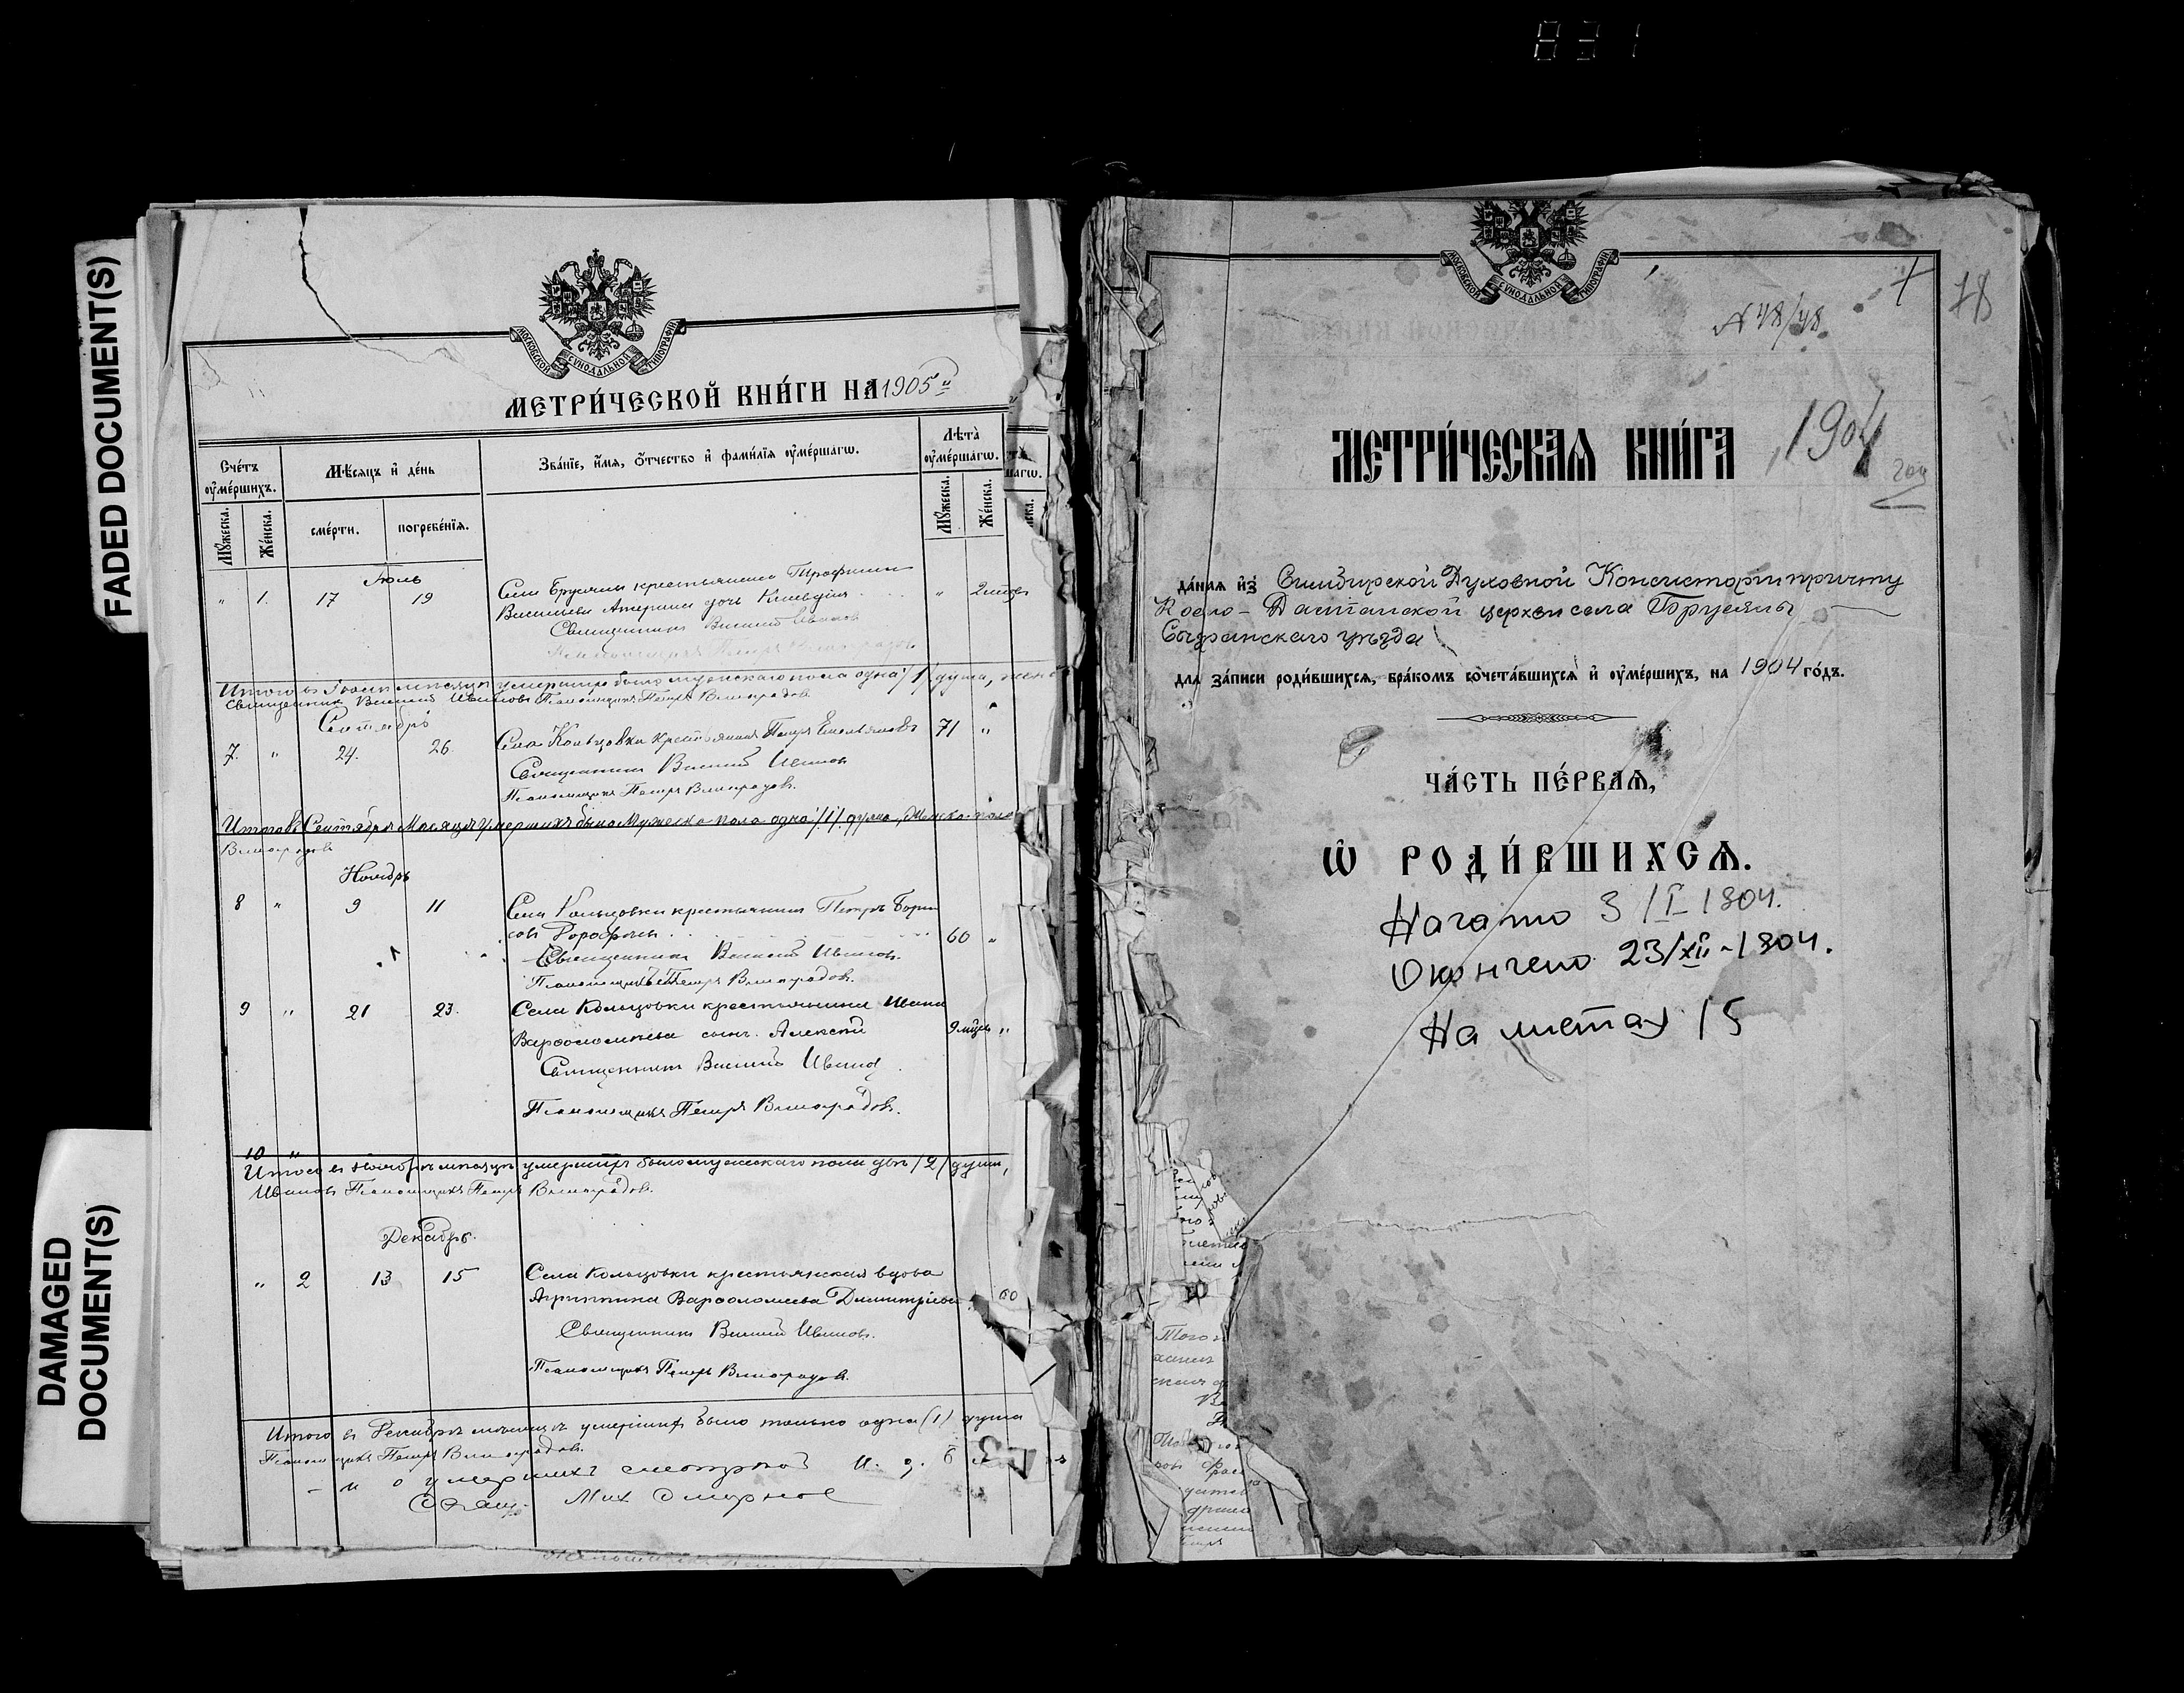 831
FADED DOCUMENT(S)
DAMAGED
DOCUMENT(S)
МОСКОВСКОЙ СѴНОДАЛЬНОЙ ТИПОГРАФІИ
МЕТРИ́ЧЕСКОЙ КНИ́ГИ НА 1905 й
Сче́тъ
ᲂу҆ме́ршихъ.
Мѣ́сяцъ и҆ де́нь
Зва́нїе, и҆́мя, ѻ҆́тчество и҆ фами́лїя ᲂу҆ме́ршагѡ.
Лѣ́та
ᲂу҆ме́ршагѡ.
Мꙋ́жеска.
Же́нска.
сме́рти.
погребе́нїя.
Мꙋ́жеска.
Же́нска.
Іюль
" 1. 17 19 Села Брусяны крестьянина Трофима
Васильева дочь Клавдія " 2 мѣсяц
Священникъ Василій Ивановъ
Псаломщикъ Петръ Виноградовъ
Итого въ Іюлѣ мѣсяцѣ умершихъ было мужескаго пола одна /1/ душа,
Священникъ Василій Ивановъ Псаломщикъ Петръ Виноградовъ
Сентябрь
7. " 24. 26. Села Кольцовки крестьянинъ Петръ Емельяновъ 71 "
Священникъ Василій Ивановъ
Псаломщикъ Петръ Виноградовъ.
Итого въ Сентябрѣ Мѣсяцѣ умершихъ было Мужеска пола одна /1/ душа, Женска пола
Виноградовъ
Ноябрь
8 " 9 11 Села Кольцовки крестьянинъ Петръ Бори
совъ 60 "
Священникъ Василій Ивановъ.
Псаломщикъ Петръ Виноградовъ.
9 " 21 23. Села Кольцовки крестьянина Ивана
Варѳоломѣева сынъ Алексѣй 9 мѣсяц "
Священникъ Василій Ивановъ
Псаломщикъ Петръ Виноградовъ.
10 "
Итого въ Ноябрѣ мѣсяцѣ умершихъ было мужескаго пола двѣ /2/ души,
Ивановъ Псаломщикъ Петръ Виноградовъ.
Декабрь.
" 2 13 15 Села Кольцовки крестьянская вдова
Агриппина Варѳоломеева Димитріева 60
Священникъ Василій Ивановъ.
Псаломщикъ Петръ Виноградовъ.
Итого въ Декабрѣ мѣсяцѣ умершихъ было только одна (1) душа
Псаломщикъ Петръ Виноградовъ.
и о умершихъ смотрѣлъ И. д. б
Свящ. Мих Смирнов
МОСКОВСКОЙ СѴНОДАЛЬНОЙ ТИПОГРАФІИ
78
N 48/48
МЕТРИ́ЧЕСКАЯ КНИ́ГА 1904
год
да́ная и҆з̾ Симбирской Духовной Консисторіи причту
Космо-Даміанской церкви села Брусяны
Сызранскаго уѣзда
для за́писи роди́вшихся, бра́комъ сочета́вшихся и҆ ᲂу҆ме́ршихъ, на 1904 го́дъ.
ЧА́СТЬ ПЕ́РВАЯ,
Ѡ҆ РОДИ́ВШИХСЯ.
Начато 3/I 1904.
Окончено 23/XII-1904.
На листах 15